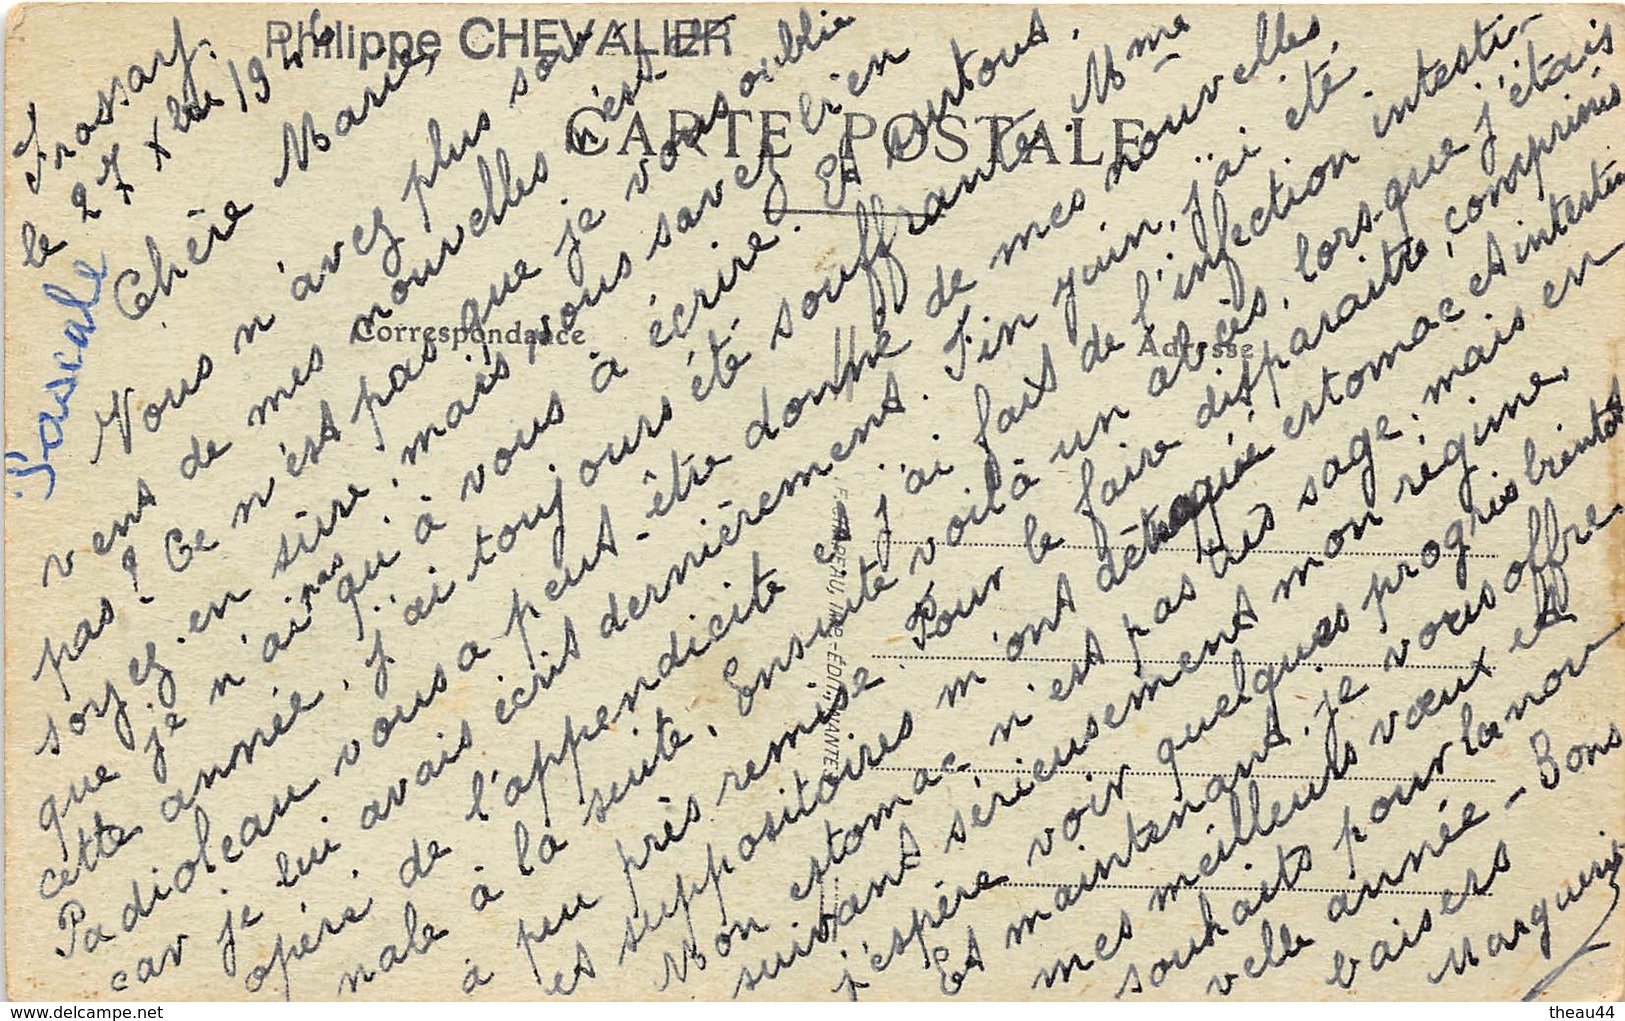 Philippe CHEVALIER
CARTE POSTALE
Correspondance
Adresse
le 27 Xbre 194
Chère Marie,
Vous n'avez plus sou-
vent de mes nouvelles n'est-ce
pas? Ce n'est pas que je vous oublie
soyez-en sûre, mais vous savez bien
que je n'ai pas qu'à vous à écrire. Et surtout,
cette année, j'ai toujours été souffrante. Mme
Padioleau vous a peut-être donné de mes nouvelles
car je lui avais écrit dernièrement. Fin juin, j'ai été
opéré de l'appendicite et j'ai fait de l'infection intesti-
nale à la suite. Ensuite voilà un abcès, lors-que j'étais
à peu près remise. Pour le faire disparaître, comprimés
et suppositoires m'ont détraquée estomac et intestin
Mon estomac n'est pas très sage; mais en
suivant sérieusement mon régime,
j'espère voir quelques progrès bientôt
Et maintenant, je vous offre
mes meilleurs vœux et
souhaits pour la nou
velle année - Bons
baisers
Pascale